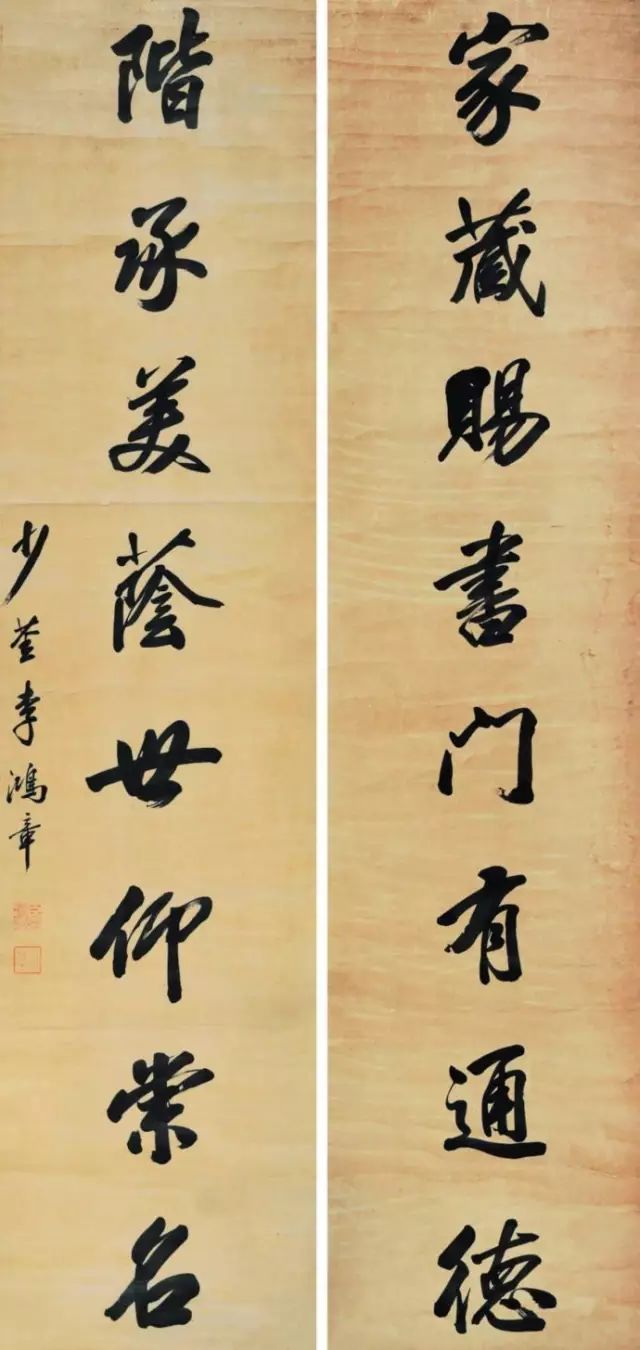 家藏賜書門有通德
階承美蔭世仰崇名
少荃李鴻章